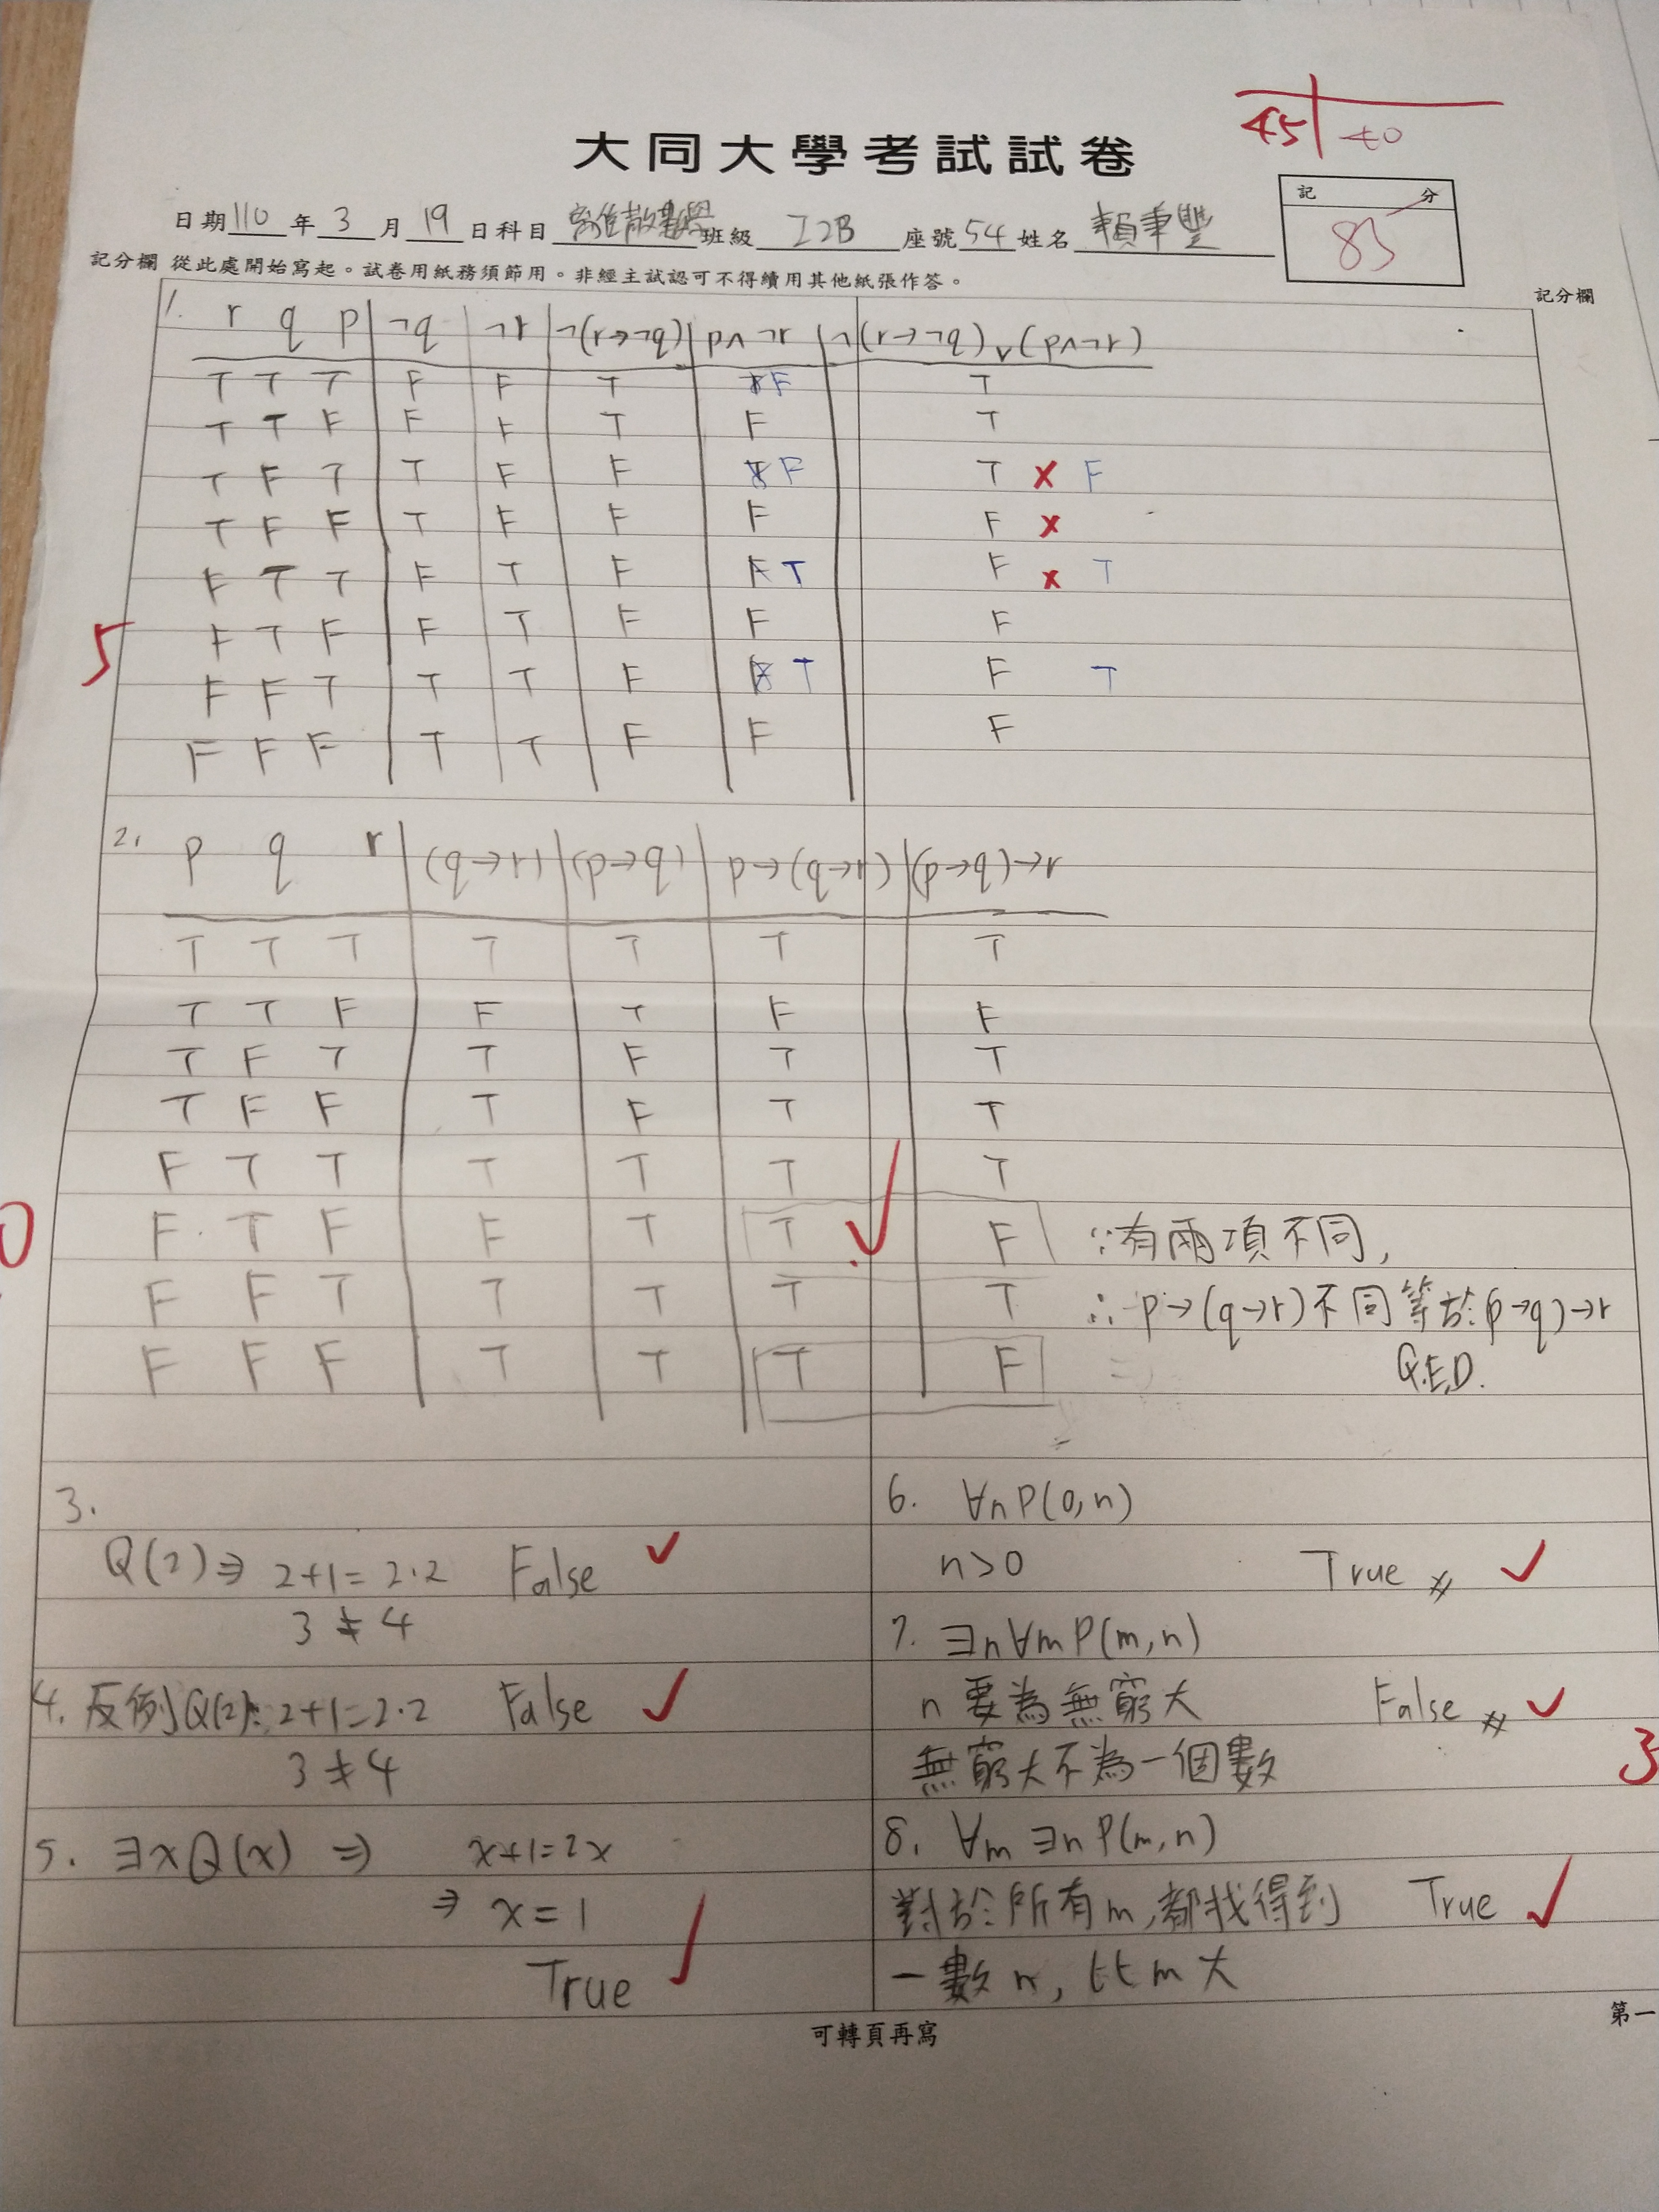 45 | 40
大同大學考試試卷
日期 110 年 3 月 19 日 科目 離散數學 班級 I2B 座號 54 姓名 賴秉豐
記分 85
記分欄 從此處開始寫起。試卷用紙務須節用。非經主試認可不得續用其他紙張作答。 記分欄
1. r q p ¬q ¬r ¬(r→¬q) p∧¬r ¬(r→¬q)∨(p∧¬r)
T T T F F T F T
T T F F F T F T
T F T T F F F T ✗ F
T F F T F F F F ✗
F T T F T F F T F ✗ T
5 F T F F T F F F
F F T T T F T F T
F F F T T F F F
2. p q r (q→r) (p→q) p→(q→r) (p→q)→r
T T T T T T T
T T F F T F F
T F T T F T T
T F F T F T T
F T T T T T T
0 F T F F T T ✓ F ∵有兩項不同,
F F T T T T T ∴ p→(q→r)不同等於(p→q)→r
F F F T T T F Q.E.D.
3.
Q(2)⇒ 2+1=2·2 False ✓
3≠4
4. 反例Q(2): 2+1=2·2 False ✓
3≠4
5. ∃xQ(x) ⇒ x+1=2x
⇒ x=1
True ✓
6. ∀nP(0,n)
n>0 True # ✓
7. ∃n∀mP(m,n)
n要為無窮大 False # ✓
無窮大不為一個數 3
8. ∀m∃nP(m,n)
對於所有m,都找得到 True ✓
一數n,比m大
可轉頁再寫
第一